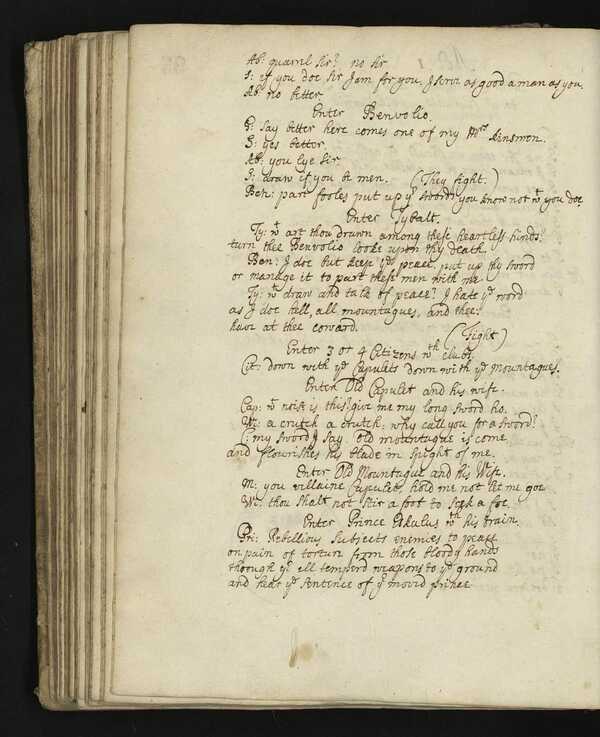 Ab: quarrel sir? no sir
S: if you doe sir I am for you, I serve as good a man as you.
Ab: no better
Enter Benvolio.
G: say better here comes one of my Mrs kinsmen.
S: yes better.
Ab: you lye sir
S: draw if you be men. (They fight.)
Ben: part fooles put up yr swords you know not wt you doe.
Enter Tybalt.
Ty: wt art thou drawn among these heartless hinds:
turn thee Benvolio looke upon thy death.
Ben: I doe but keep the peace, put up thy sword
or manage it to part these men with me
Ty: wt draw and talk of peace? I hate ye word
as I doe hell, all mountagues, and thee:
have at thee coward. (Fight)
Enter 3 or 4 Citizens wth clubs.
Cit: down with ye Capulets down with ye mountagues.
Enter Old Capulet and his wife.
Cap: wt noise is this? give me my long sword ho.
Wi: a crutch a crutch: why call you for a sword?
C: my sword I say. Old mountague is come
and flourishes his blade in spight of me.
Enter Old Mountague and his Wife.
M: you villaine Capulet, hold me not let me goe
Wi: thou shalt not stir a foot to seek a foe.
Enter Prince Eskulus wth his train.
Pri: Rebellious subjects enemies to peace
on pain of torture from those bloody hands
through yr ill temperd weapons to ye ground
and hear ye sentence of yr movid prince